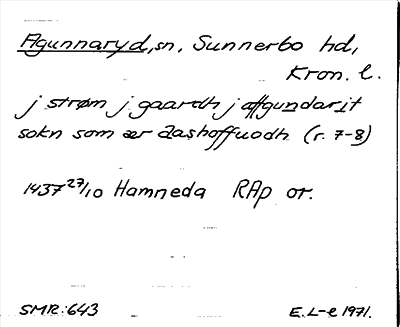 Agunnaryd, sn, Sunnerbo hd,
Kron. l.
j strøm j gaardh j affgundarit
sokn som ær aashoffuodh (r. 7-8)
1437 27/10 Hamneda RAp or.
SMR:643
E. L-e 1971.